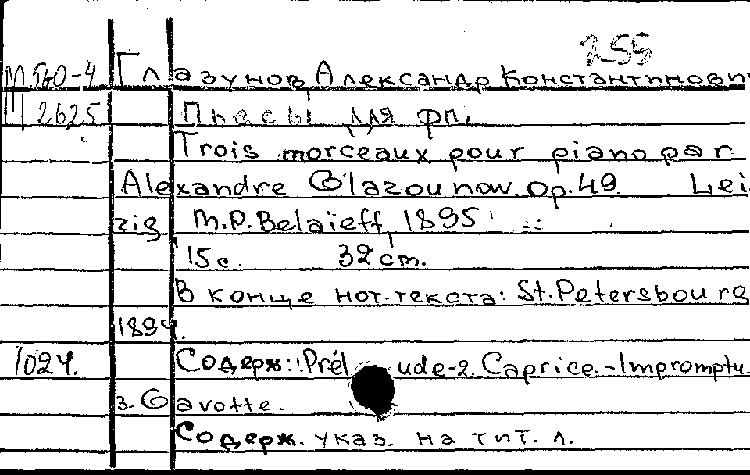 255
М 540-4 Глазунов, Александр Константинови
2625 Пьесы для фп.
Trois morceaux pour piano par
Alexandre Glazounow. Op. 49. Lei
zig M.P. Belaïeff, 1895
15 с. 32 cm.
В конце нот. текста: St. Petersbourg
1894.
1024. Содерж.: Prélude-2. Caprice.-Impromptu.
3. Gavotte.
Содерж. указ. на тит. л.